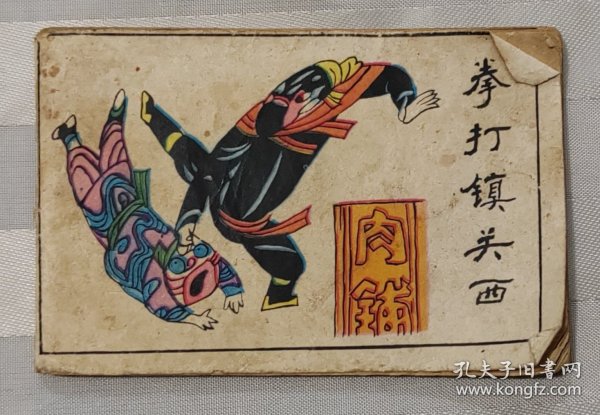 拳打镇关西
肉铺
孔夫子旧书网
www.kongfz.com